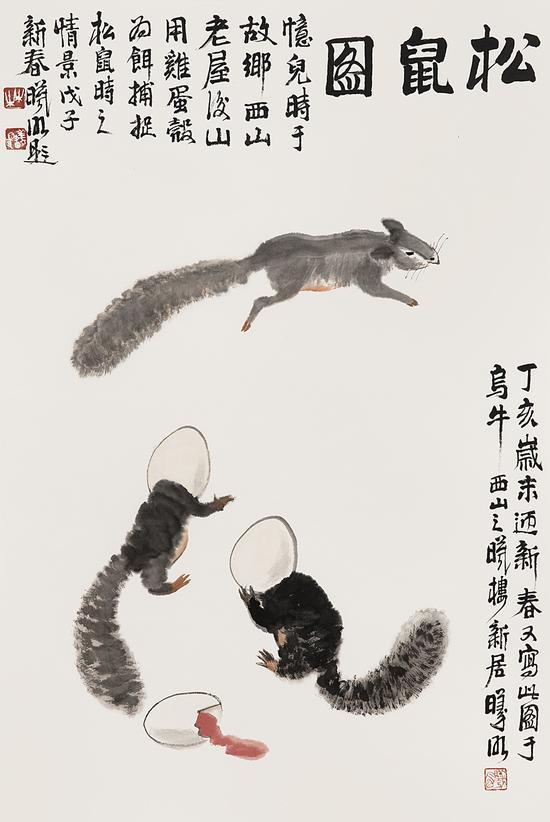 松鼠圖
憶兒時于
故鄉西山
老屋後山
用雞蛋殼
為餌捕捉
松鼠時之
情景戊子
新春曦
丁亥歲末迎新春又寫此圖于
烏牛西山之曦樓新居曦